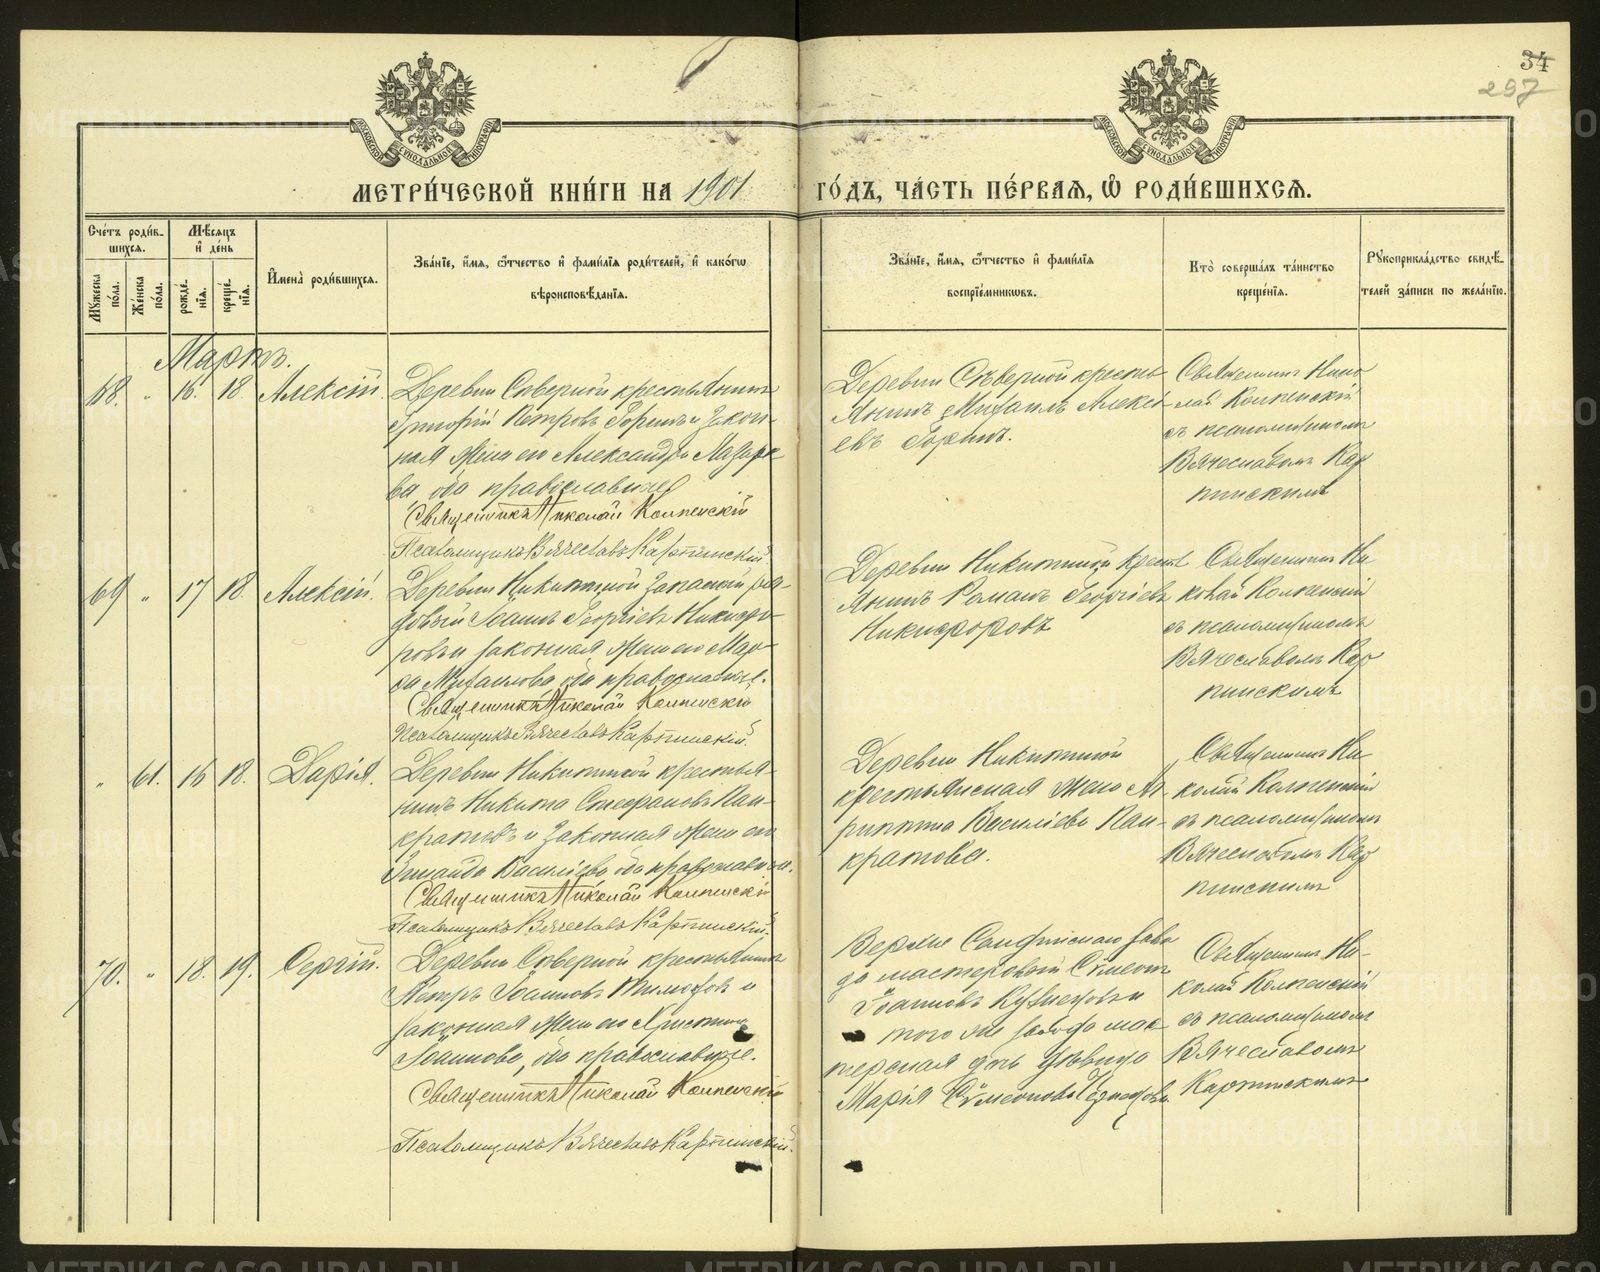 34
297
МЕТРИ́ЧЕСКОЙ КНИ́ГИ НА 1901 ГО́ДЪ, ЧА́СТЬ ПЕ́РВАѦ, Ѡ҆ РОДИ́ВШИХСѦ.
Сче́тъ роди́в-
шихсѧ.
Мꙋжеска по́ла.
Же́нска по́ла.
Мѣ́сѧцъ и҆ де́нь
рожде́-
нїѧ.
креще́-
нїѧ.
И҆мена̀ роди́вшихсѧ.
Зва́нїе, и҆́мѧ, ѻ҆́тчество и҆ фами́лїѧ роди́телей, и҆ како́гѡ
вѣроисповѣ́данїѧ.
Зва́нїе, и҆́мѧ, ѻ҆́тчество и҆ фами́лїѧ
воспрїе́мникѡвъ.
Кто̀ соверша́лъ та́инство
креще́нїѧ.
Рꙋкоприкла́дство свидѣ́-
телей за́писи по жела́нїю.
Мартъ.
68. „ 16. 18. Алексій.
Деревни Сѣверной крестьянинъ
Григорій Петровъ Горинъ и закон-
ная жена его Александра Лазаре-
ва оба православные
Священникъ Николай Колпенскій
Псаломщикъ Вячеславъ Карпинскій.
Деревни Сѣверной кресть-
янинъ Михаилъ Алексі-
евъ Горинъ.
Священникъ Нико-
лай Колпенскій
съ псаломщикомъ
Вячеславомъ Кар-
пинскимъ
69 „ 17 18. Алексій.
Деревни Никитиной запасный ря-
довый Іоаннъ Георгіевъ Никифо-
ровъ и законная жена его Мар-
фа Михаилова оба православные.
Священникъ Николай Колпенскій
Псаломщикъ Вячеславъ Карпинскій.
Деревни Никитиной крест-
янинъ Романъ Георгіевъ
Никифоровъ
Священникъ Ни-
колай Колпенскій
съ псаломщикомъ
Вячеславомъ Кар-
пинскимъ
„ 61. 16 18. Дарія.
Деревни Никитиной крестья-
нинъ Никита Стефановъ Пан-
кратовъ и законная жена его
Васильева оба православные.
Священникъ Николай Колпенскій
Псаломщикъ Вячеславъ Карпинскій.
Деревни Никитиной
крестьянская жена Аг-
риппина Василіева Пан-
кратова.
Священникъ Ни-
колай Колпенскій
съ псаломщикомъ
Вячеславомъ Кар-
пинскимъ
70. „ 18. 19. Сергій.
Деревни Сѣверной крестьянинъ
Петръ Іоанновъ Тимофѣевъ и
законная жена его Христина
Іоаннова, оба православные.
Священникъ Николай Колпенскій
Псаломщикъ Вячеславъ Карпинскій.
Верхне заво-
да мастеровый Сѵмеонъ
Іоанновъ Кузнецовъ и
того же завода мас-
терская дочь дѣвица
Марія Сѵмеонова
Священникъ Ни-
колай Колпенскій
съ псаломщикомъ
Вячеславомъ
Карпинскимъ